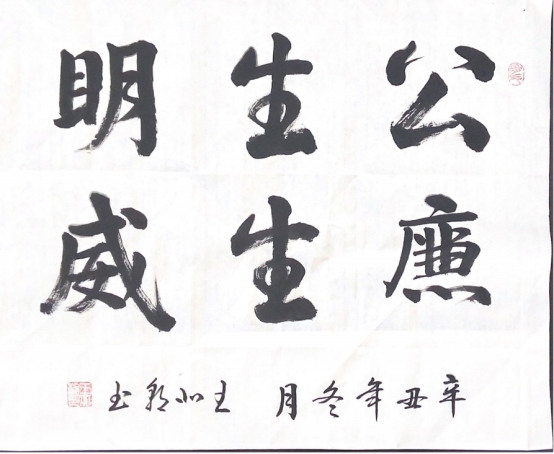 公生明
廉生威
辛丑年冬月 王小郭书